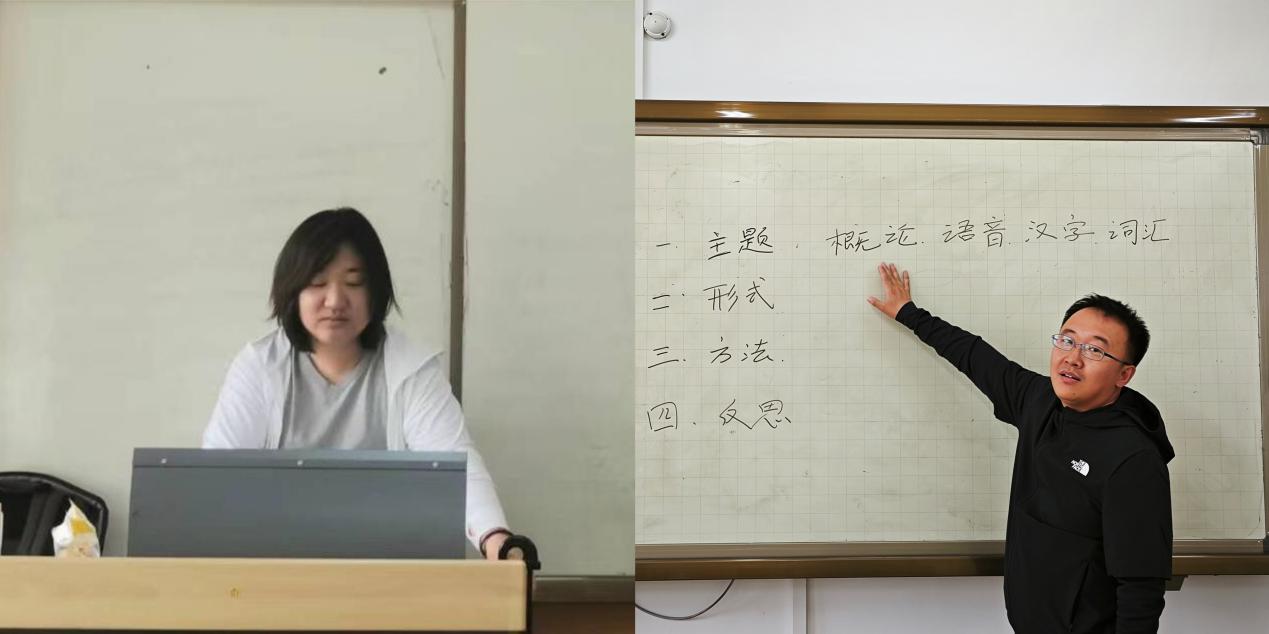 一. 主题. 概论. 语音. 汉字. 词汇
二. 形式
三. 方法.
四. 反思
THE NORTH FACE